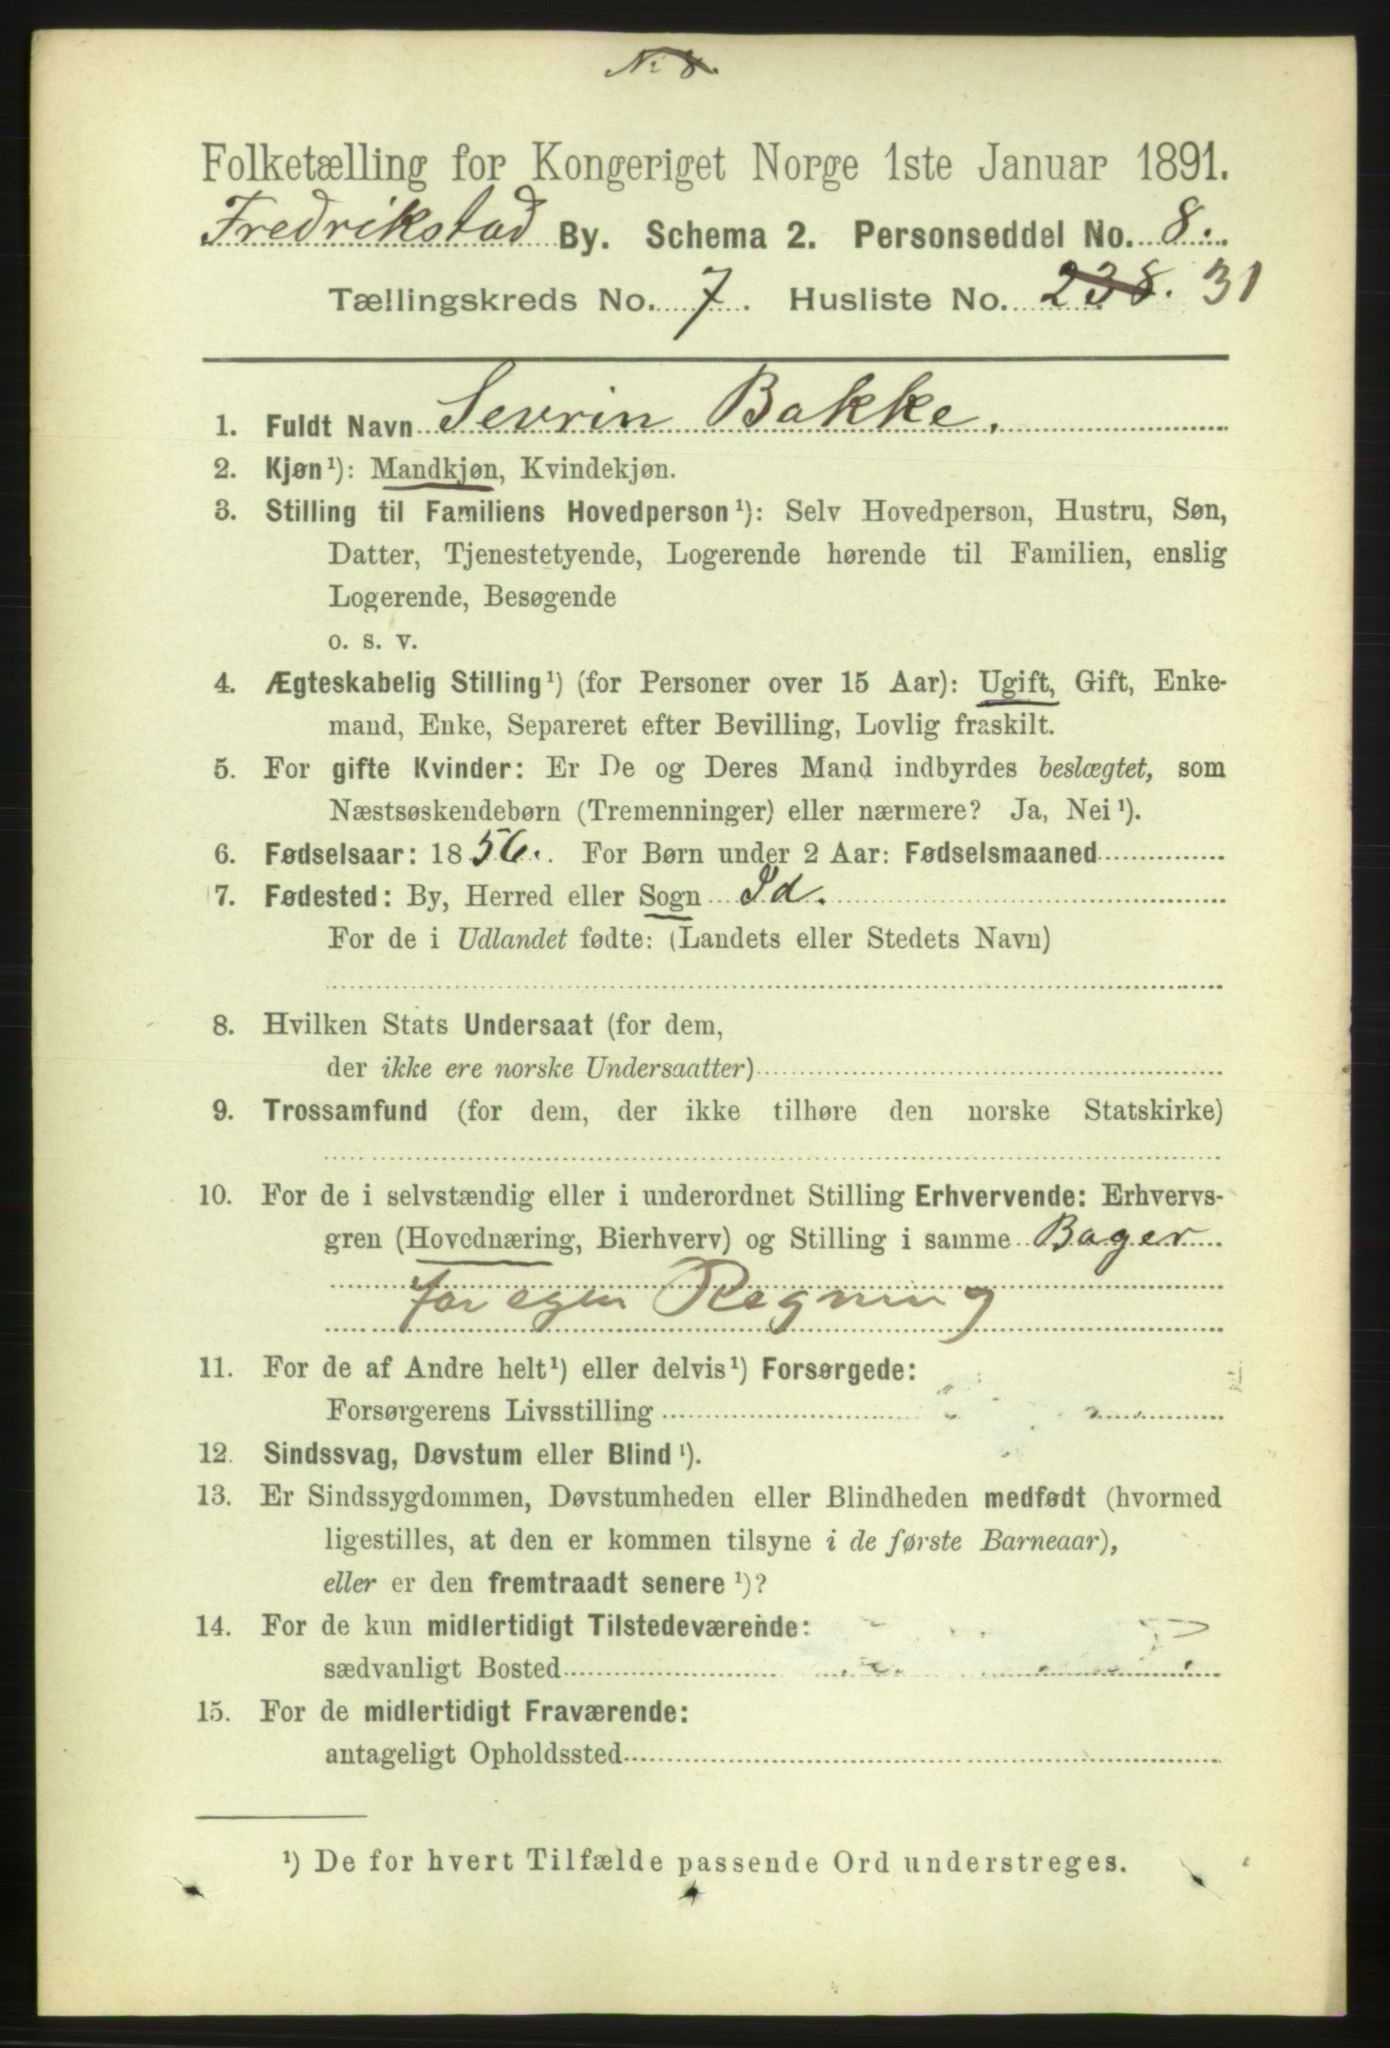 No 8.
Folketælling for Kongeriget Norge 1ste Januar 1891.
Fredrikstad By. Schema 2. Personseddel No. 8.
Tællingskreds No. 7. Husliste No. 238. 31
1. Fuldt Navn Sevrin Bakke.
2. Kjøn¹): Mandkjøn, Kvindekjøn.
3. Stilling til Familiens Hovedperson¹): Selv Hovedperson, Hustru, Søn,
Datter, Tjenestetyende, Logerende hørende til Familien, enslig
Logerende, Besøgende
o. s. v.
4. Ægteskabelig Stilling¹) (for Personer over 15 Aar): Ugift, Gift, Enke-
mand, Enke, Separeret efter Bevilling, Lovlig fraskilt.
5. For gifte Kvinder: Er De og Deres Mand indbyrdes beslægtet, som
Næstsøskendebørn (Tremenninger) eller nærmere? Ja, Nei¹).
6. Fødselsaar: 1856. For Børn under 2 Aar: Fødselsmaaned
7. Fødested: By, Herred eller Sogn Id.
For de i Udlandet fødte: (Landets eller Stedets Navn)
8. Hvilken Stats Undersaat (for dem,
der ikke ere norske Undersaatter)
9. Trossamfund (for dem, der ikke tilhøre den norske Statskirke)
10. For de i selvstændig eller i underordnet Stilling Erhvervende: Erhvervs-
gren (Hovednæring, Bierhverv) og Stilling i samme Bager
for egen Regning
11. For de af Andre helt¹) eller delvis¹) Forsørgede:
Forsørgerens Livsstilling
12. Sindssvag, Døvstum eller Blind¹).
13. Er Sindssygdommen, Døvstumheden eller Blindheden medfødt (hvormed
ligestilles, at den er kommen tilsyne i de første Barneaar),
eller er den fremtraadt senere¹)?
14. For de kun midlertidigt Tilstedeværende:
sædvanligt Bosted
15. For de midlertidigt Fraværende:
antageligt Opholdssted
¹) De for hvert Tilfælde passende Ord understreges.